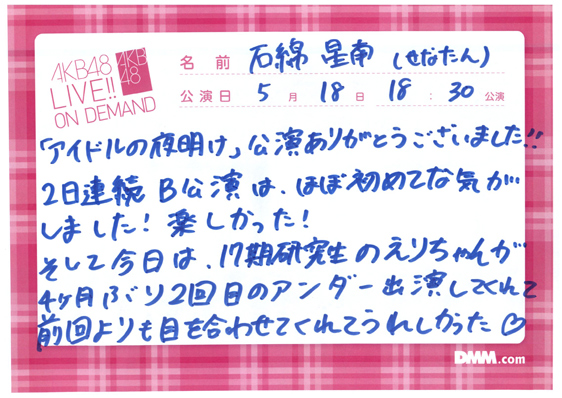 AKB48
LIVE!!
ON DEMAND
AKB
48
名前 石綿 星南 (せなたん)
公演日 5月 18日 18:30公演
「アイドルの夜明け」公演ありがとうございました!!
2日連続B公演は、ほぼ初めてな気が
しました!楽しかった!
そして今日は、17期研究生のえりちゃんが
4ヶ月ぶり2回目のアンダー出演してくれて
前回よりも目を合わせてくれてうれしかった♡
DMM.com